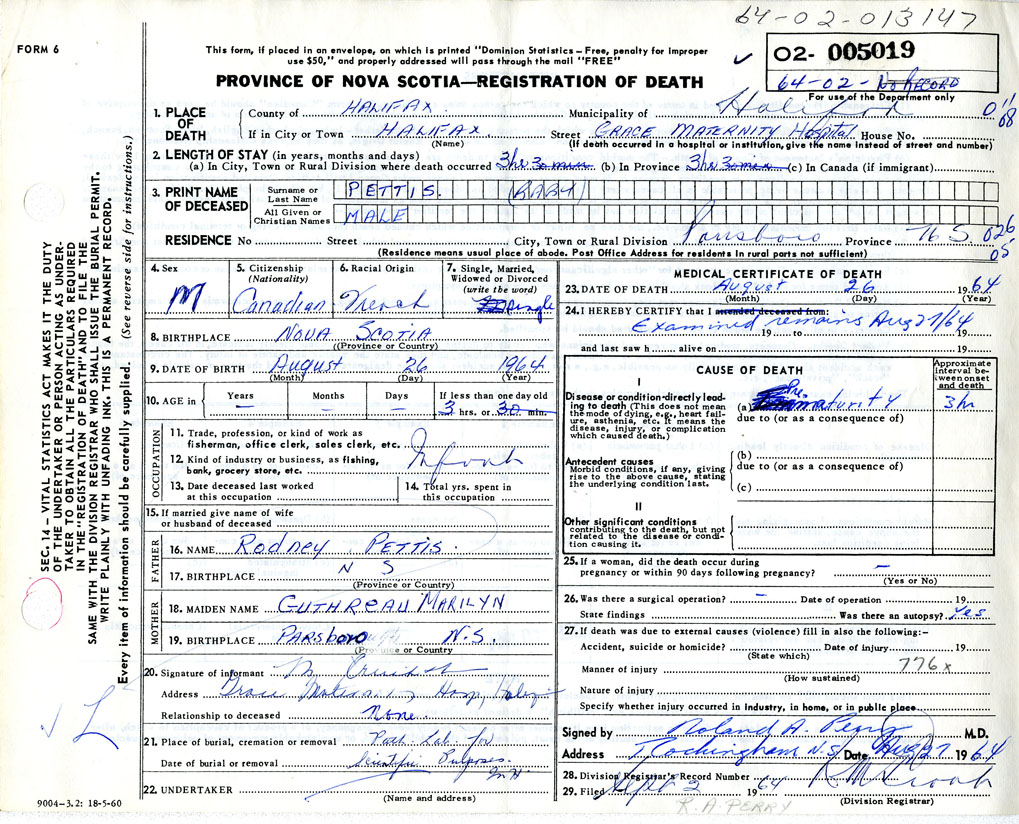 64-02-013147
FORM 6
This form, if placed in an envelope, on which is printed "Dominion Statistics – Free, penalty for improper
use $50," and properly addressed will pass through the mail "FREE"
02- 005019
64-02- No Record
For use of the Department only
PROVINCE OF NOVA SCOTIA—REGISTRATION OF DEATH
1. PLACE OF DEATH
County of HALIFAX Municipality of Halifax 011
68
If in City or Town HALIFAX Street GRACE MATERNITY Hospital House No.
(Name) (If death occurred in a hospital or institution, give the name instead of street and number)
2. LENGTH OF STAY (in years, months and days)
(a) In City, Town or Rural Division where death occurred 3 hr 30 min (b) In Province 3 hr 30 min (c) In Canada (if immigrant)
3. PRINT NAME OF DECEASED
Surname or Last Name PETTIS. (BABY)
All Given or Christian Names MALE
RESIDENCE No Street City, Town or Rural Division Parrsboro Province N S 026
05
(Residence means usual place of abode. Post Office Address for residents in rural parts not sufficient)
4. Sex M
5. Citizenship (Nationality) Canadian
6. Racial Origin French
7. Single, Married, Widowed or Divorced (write the word) Single
8. BIRTHPLACE NOVA SCOTIA
(Province or Country)
9. DATE OF BIRTH August 26 1964
(Month) (Day) (Year)
10. AGE in Years Months Days If less than one day old
– – – 3 hrs. or 30 min.
OCCUPATION
11. Trade, profession, or kind of work as
fisherman, office clerk, sales clerk, etc.
12. Kind of industry or business, as fishing,
bank, grocery store, etc.
Infant
13. Date deceased last worked
at this occupation
14. Total yrs. spent in
this occupation
15. If married give name of wife
or husband of deceased
FATHER
16. NAME Rodney PETTIS.
17. BIRTHPLACE N S
(Province or Country)
MOTHER
18. MAIDEN NAME GUTHREAU MARILYN
19. BIRTHPLACE PARSboro N.S.
(Province or Country
20. Signature of informant
Address Grace Maternity Hosp, Halifax
Relationship to deceased None.
21. Place of burial, cremation or removal Path Lab. for
Date of burial or removal Scientific Purposes.
22. UNDERTAKER
(Name and address)
9004–3.2: 18-5-60
SEC. 14 – VITAL STATISTICS ACT MAKES IT THE DUTY
OF THE UNDERTAKER OR PERSON ACTING AS UNDER-
TAKER TO OBTAIN ALL THE PARTICULARS REQUIRED
IN THE "REGISTRATION OF DEATH" AND TO FILE THE
SAME WITH THE DIVISION REGISTRAR WHO SHALL ISSUE THE BURIAL PERMIT.
WRITE PLAINLY WITH UNFADING INK. THIS IS A PERMANENT RECORD.
Every item of information should be carefully supplied. (See reverse side for instructions.)
MEDICAL CERTIFICATE OF DEATH
23. DATE OF DEATH August 26 1964
(Month) (Day) (Year)
24. I HEREBY CERTIFY that I attended deceased from:
Examined remains Aug 27/64
19 to 19
and last saw h alive on 19
CAUSE OF DEATH
Approximate interval between onset and death
I
Disease or condition-directly lead-
ing to death (This does not mean
the mode of dying, e.g., heart fail-
ure, asthenia, etc. It means the
disease, injury, or complication
which caused death.)
(a) Prematurity 3 hr
due to (or as a consequence of)
Antecedent causes
Morbid conditions, if any, giving
rise to the above cause, stating
the underlying condition last.
(b)
due to (or as a consequence of)
(c)
II
Other significant conditions
contributing to the death, but not
related to the disease or condi-
tion causing it.
25. If a woman, did the death occur during
pregnancy or within 90 days following pregnancy? –
(Yes or No)
26. Was there a surgical operation? – Date of operation 19
State findings Was there an autopsy? Yes
27. If death was due to external causes (violence) fill in also the following:–
Accident, suicide or homicide? Date of injury 19
(State which)
776x
Manner of injury
(How sustained)
Nature of injury
Specify whether injury occurred in industry, in home, or in public place
Signed by Roland A. Perry M.D.
Address Rockingham N.S. Date Aug 27 1964
28. Division Registrar's Record Number
29. Filed Sept 2 1964
(Division Registrar)
R. A. PERRY